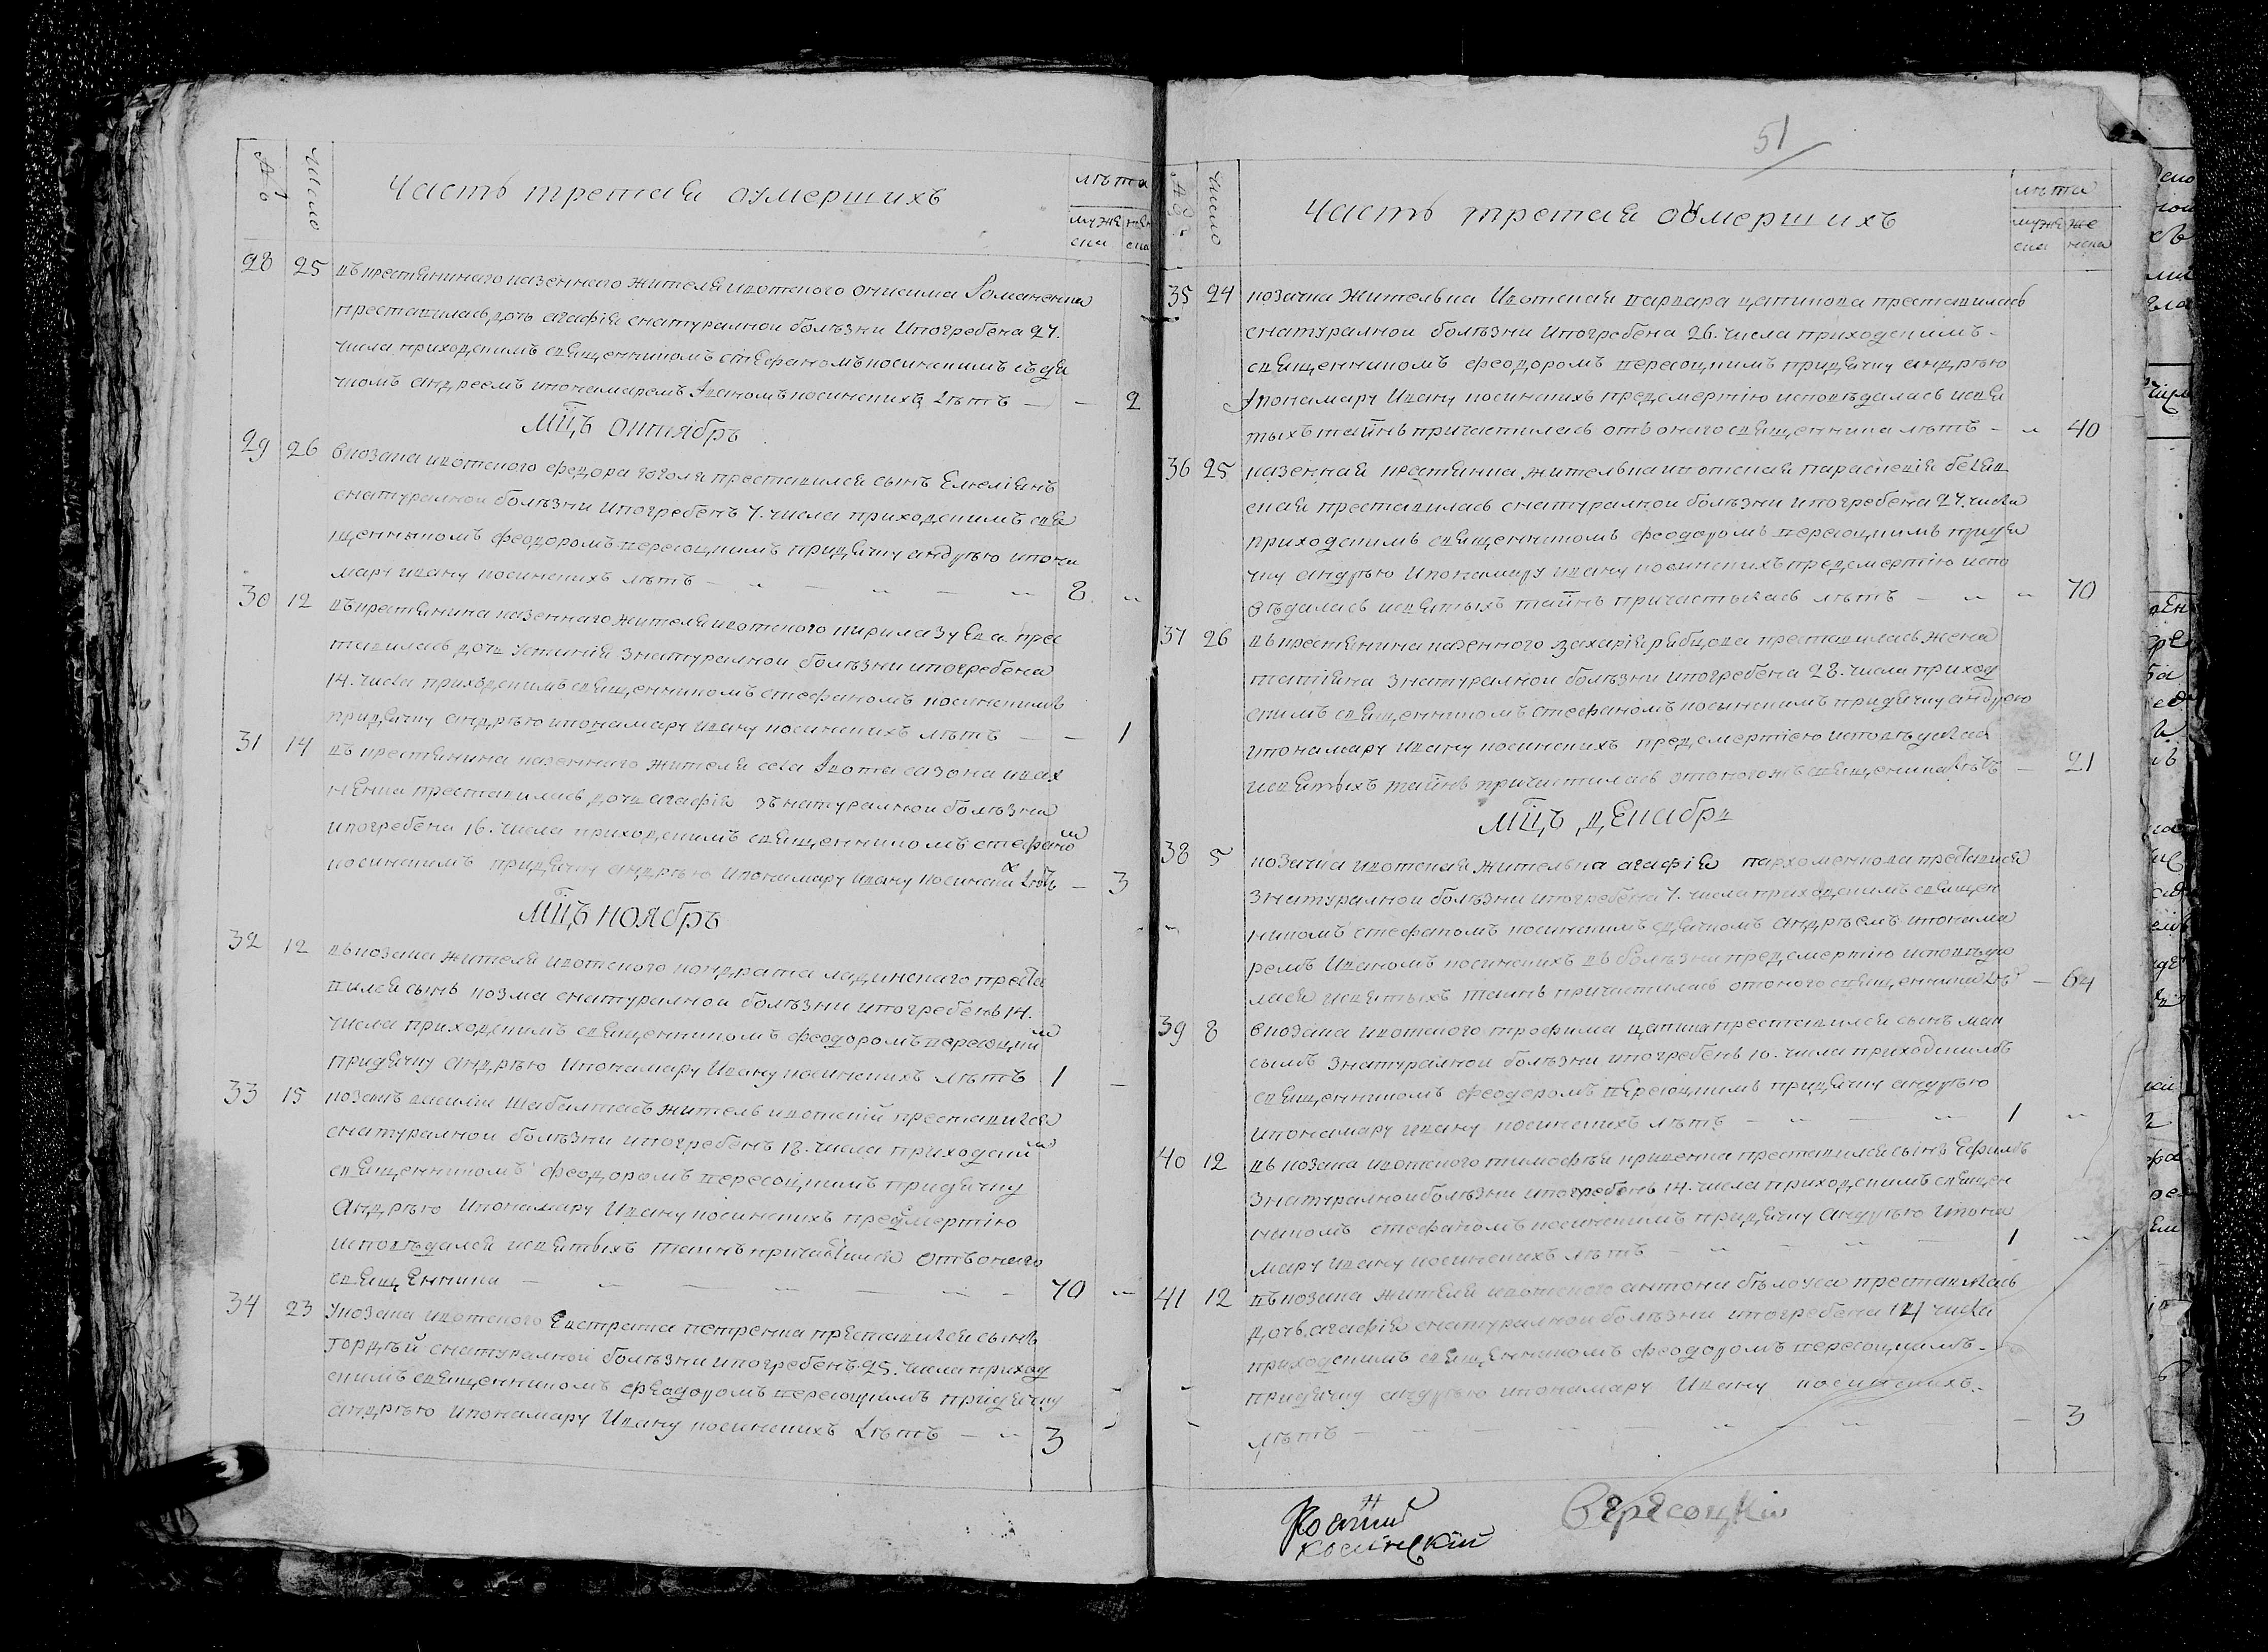 №
Число
Часть третая оумершихъ
лѣта
мужес
ска
28 25 въ крестянинаго казеннаго жителя ивотского онисима Романенка
преставилась дочь агафія снатуралной болѣзни ипогребена 27.
числа приходскимъ священникомъ стефаномъ косинскимъ съ дя
чкомъ андреемъ ипономаремъ Иваномъ косинскихъ лѣтъ — — 2
Мцъ октябрь
29 26 вкозака ивотского федора гоголя преставился сынъ Емеліянъ
снатуралной болѣзни ипогребенъ 7. числа приходскимъ свя
щенникомъ феодоромъ пересоцкимъ придячку андрѣю ипоно
мару ивану косинскихъ лѣтъ — 8.
30 12 въ крестянина казеннаго жителя ивотского кирила зуева прес
тавилась дочь устинія знатуралной болѣзни ипогребена
14. числа приходскимъ священникомъ стефаномъ косинскимъ
придячку андрѣю ипономару ивану косинскихъ лѣтъ — — 1
31 14 въ крестянина казеннаго жителя села Ивота сазона ивах
ненка преставилась дочь агафія зъ натуралной болѣзни
ипогребена 16. числа приходскимъ священникомъ стефано м
косинскимъ придячку андрѣю ипономару ивану косински х лѣтъ — 3
Мцъ ноябрь
32 12 въ козака жителя ивотского кондрата ладинскаго преста
вился сынъ козма снатуралной болѣзни ипогребенъ 14.
числа приходскимъ священникомъ феодоромъ пересоцки м
придячку андрѣю ипономару Ивану косинскихъ лѣтъ 1 —
33 15 козакъ василій шабалтасъ житель ивотскій преставился
снатуралной болѣзни ипогребенъ 18. числа приходски м
священникомъ феодоромъ пересоцкимъ придячку
андрѣю ипономару Ивану косинскихъ предсмертію
исповѣдался исвятыхъ таинъ причастился отъ онаго
священника — 70
34 23 Укозака ивотского Евстрата петренка преставился сынъ
гордѣй снатуралной болѣзни ипогребенъ 25. числа приход
скимъ священникомъ феодоромъ пересоцкимъ придячку
андрѣю ипономару Ивану косинскихъ лѣтъ — 3
51
Число
Часть третая оумершихъ
лѣта
муже же
ска нска
35 24 козачка жителька Ивотская варвара цапикова преставилась
снатуралной болѣзни ипогребена 26. числа приходскимъ
священникомъ феодоромъ пересоцкимъ придячку андрѣю
Ипономару Ивану косинскихъ предсмертію исповѣдалась исвя
тыхъ тайнъ причастилась отъ онаго священника лѣтъ — 40
36 25 казенная крестянка жителька ивотская параскевія
ская преставилась снатуралной болѣзни ипогребена 27. числа
приходскимъ священникомъ феодоромъ пересоцкимъ придя
чку андрѣю ипономару ивану косинскихъ предсмертію испо
вѣдалась исвятыхъ тайнъ причастылась лѣтъ — 70
37 26 въ крестянина казенного захарія рябцова преставилась жена
татіяна знатуралной болѣзни ипогребена 28. числа приход
скимъ священникомъ стефаномъ косинскимъ придячку андрею
ипономару ивану косинскихъ предсмертію исповѣдалас
исвятыхъ тайнъ причастилась отоногожъ священика лѣтъ — 21
Мцъ декабрь
38 5 козачка ивотская жителька агафія пархоменкова преставися
знатуралной болѣзни ипогребена 7. числа приходскимъ священ
никомъ стефаномъ косинскимъ сдячкомъ андрѣемъ ипонома
ремъ Иваномъ косинскихъ въ болѣзни предсмертію исповѣда
лася исвятыхъ таинъ причастилась отоного священника лѣ — 64
39 8 вкозака ивотского трофима цапика преставился сынъ мак
сымъ знатуралной болѣзни ипогребенъ 10. числа приходскимъ
священникомъ феодоромъ пересоцкимъ придячку андрѣю
ипономару ивану косинскихъ лѣтъ — 1
40 12 въ козака ивотского тимофѣя кривенка преставился сынъ Ефимъ
знатуралной болѣзни ипогребенъ 14. числа приходскимъ священ
никомъ стефаномъ косинскимъ придячку андрѣю ипоно
мару ивану косинскихъ лѣтъ 1
41 12 въ козака жителя ивотского антона бѣлоуса преставилась
дочь агафія снатуралной болѣзни ипогребена 14 числа
приходскимъ священникомъ феодоромъ пересоцкимъ
придячку андрѣю ипономару Ивану косинскихъ
лѣтъ — 3
косинскій